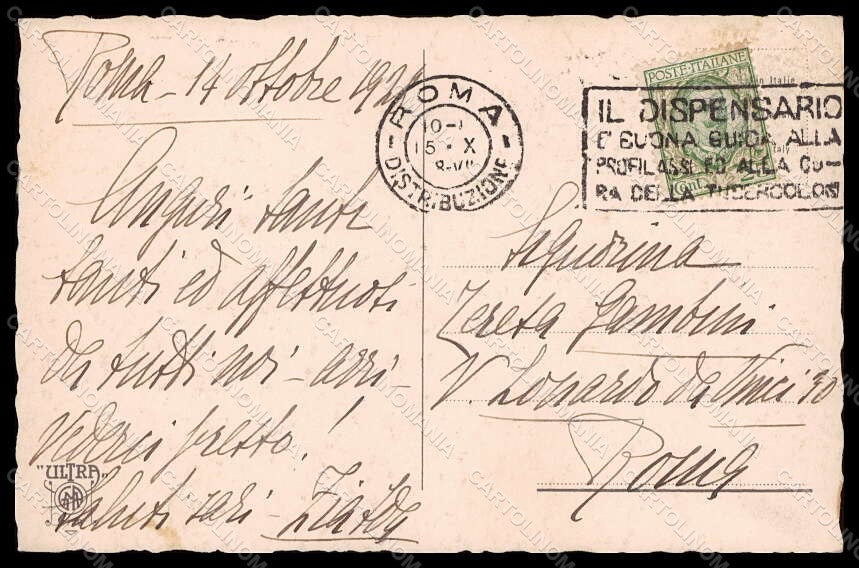 Roma - 14 ottobre 192
Auguri tanti
tanti ed affettuosi
da tutti noi - arri-
vederci presto!
Saluti cari - Zia Ida
"ULTRA"
ROMA
10-
15 X
8-VII
DISTRIBUZIONE
POSTE·ITALIANE
Cent
IL DISPENSARIO
E' BUONA GUIDA ALLA
PROFILASSI ED ALLA CU-
RA DELLA TUBERCOLOSI
Signorina
Teresa Gambini
V. Leonardo da Vinci 30
Roma
CARTOLINOMANIA